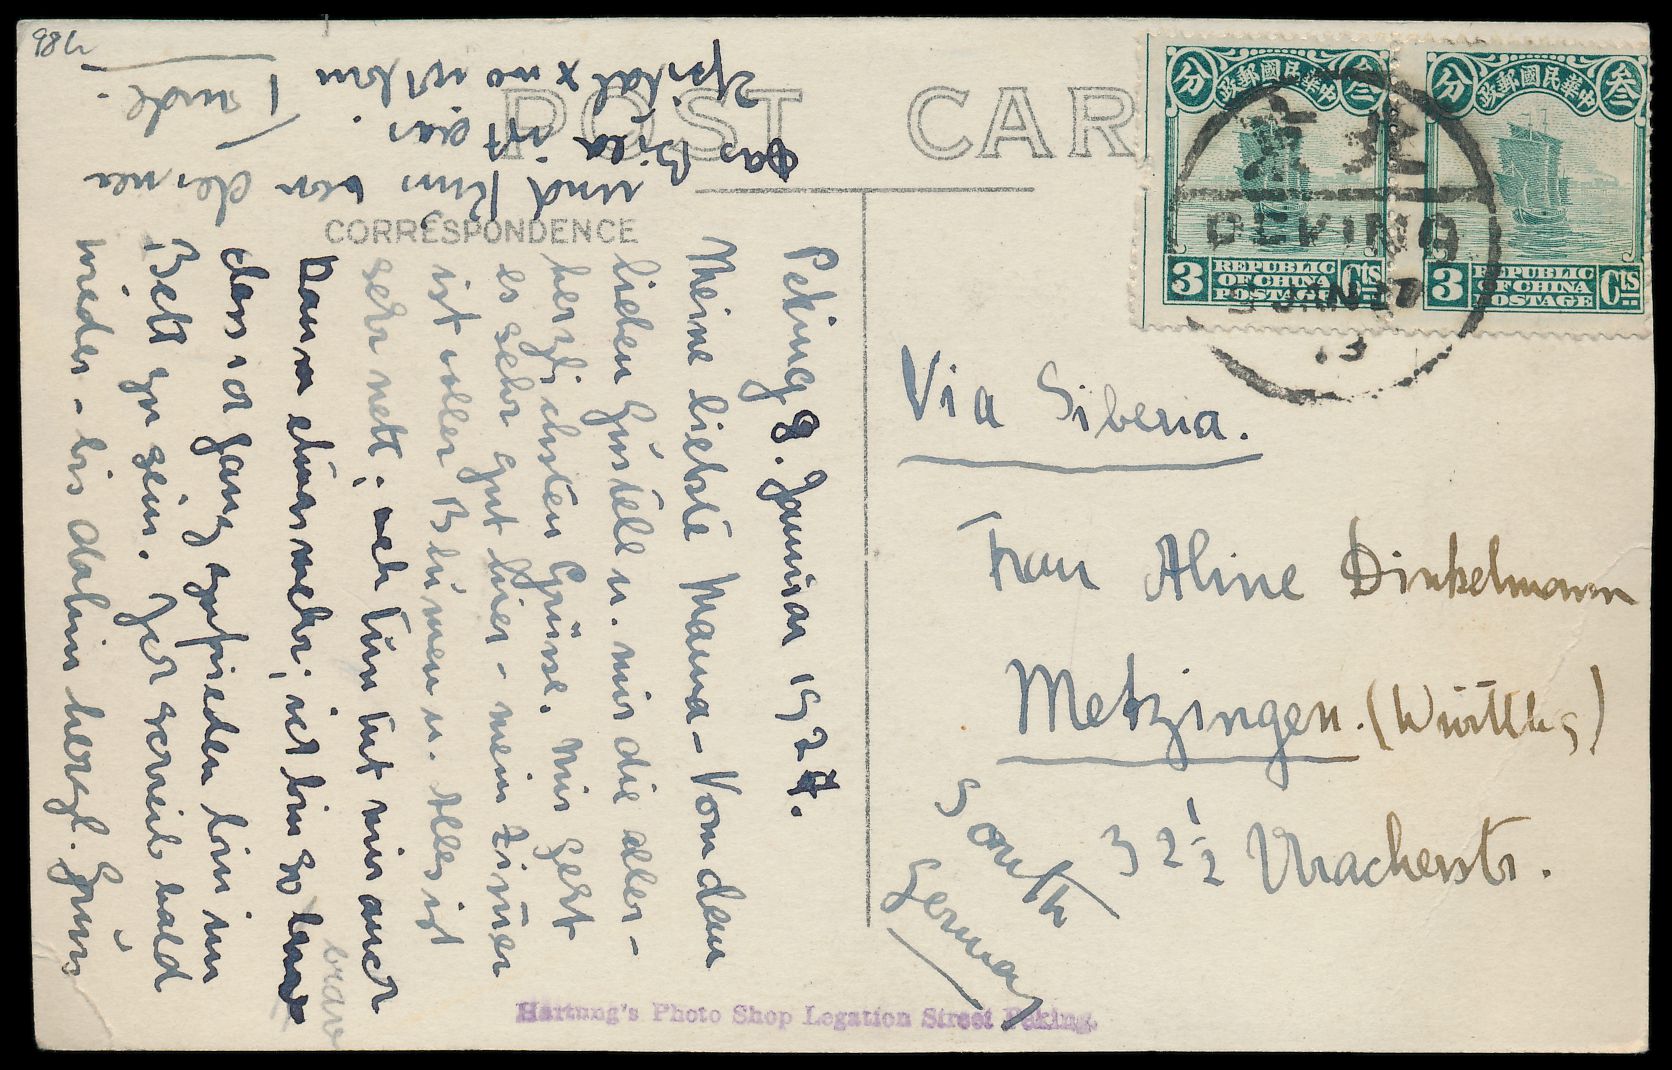 POST CAR
CORRESPONDENCE
Peking 9. Januar 1927.
Meine liebste Mama - Von dem
lieben Güstele u. mir die aller-
herzlichsten Grüsse. Mir geht
es sehr gut hier - mein Zimmer
ist voller Blumen u. Alles ist
sehr nett; weh tun tut mir auch
kaum etwas mehr; ich bin so
brav
dass ich ganz zufrieden bin im
Bett zu sein. Ich schreib bald
wieder - bis dahin herzl. Gruss
und Kuss von deiner
Das Bild ist
Spital x wo ich bin
中華民國郵政
叁
分
3 REPUBLIC OF CHINA POSTAGE Cts
中華民國郵政
叁
分
3 REPUBLIC OF CHINA POSTAGE Cts
PEKING
JAN
13
Via Siberia.
Frau Aline Dinkelmann
Metzingen. (Württbg)
32 1/2 Uracherstr.
South
Germany
Hartung's Photo Shop Legation Street Peking.